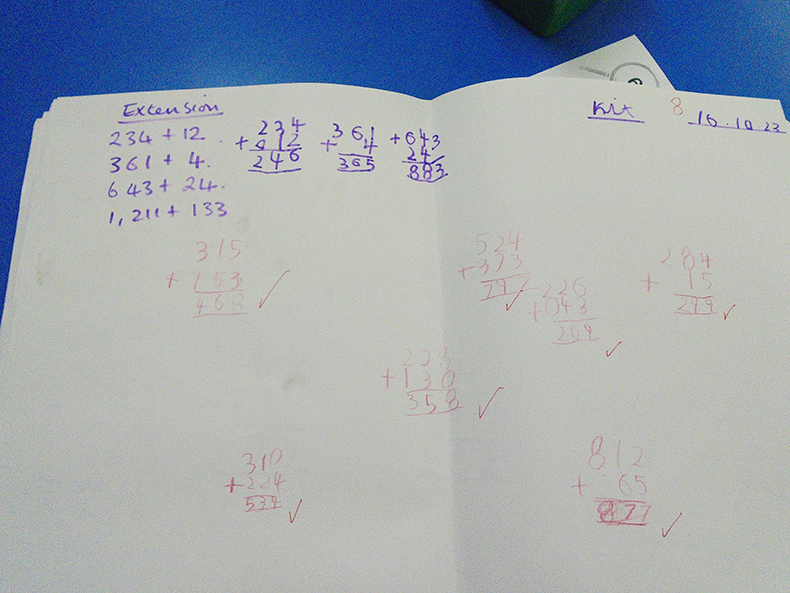 Extension
234 + 12
361 + 4.
643 + 24.
1,211 + 133
234
+ 012
246
361
+ 4
365
+ 643
24
883
Kit 8 16.10.23
315
+ 153
468
524
+ 373
226
+ 043
269
284
+ 15
299
+ 130
358
310
+ 224
534
812
+ 65
877